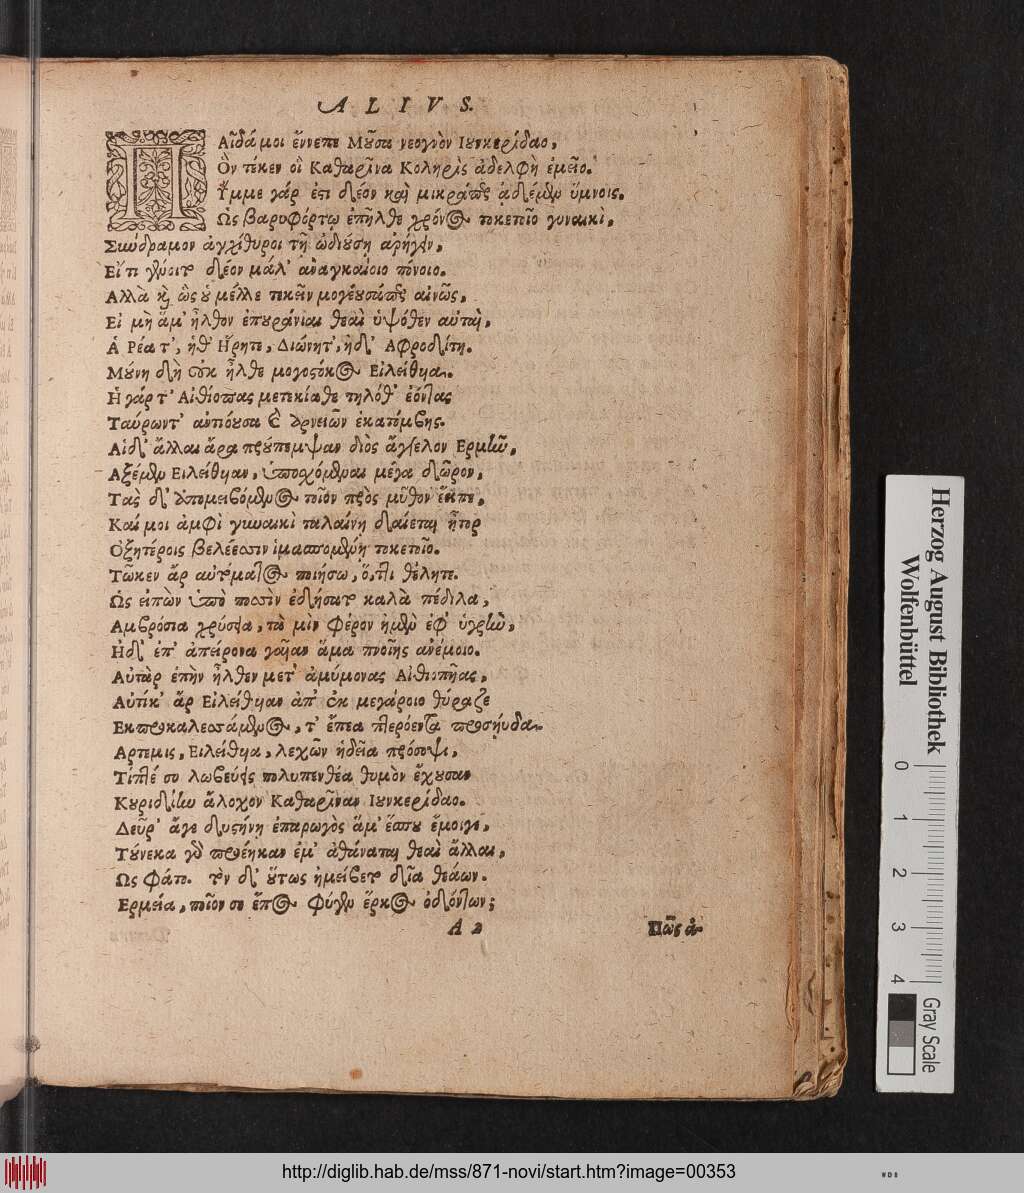 ALIVS.
ΠΑῖδά μοι ἔννεπε Μοῦσα νεογνὸν Ιουνκερίδαο,
Ὃν τέκεν οἱ Καθαρῖνα Κοληρὶς ἀδελφὴ ἐμεῖο.
Υ̓́μμε γάρ ἐστι δέον καὶ μικρά τε ἀδέμεν ὕμνοις.
Ὡς βαρυφόρτῳ ἐπῆλθε χρόνος τοκετοῖο γυναικὶ,
Συνέδραμον ἀγχίθυροι τῇ ὠδινούσῃ ἀρήγειν,
Εἴ τι γένοιτο δέον μάλ' ἀναγκαίοιο πόνοιο.
Αλλὰ καὶ ὣς οὐ μέλλε τεκεῖν μογέουσά τε αἰνῶς,
Εἰ μὴ ἅμ' ἦλθον ἐπουράνιαι θεαὶ ὑψόθεν αὐταὶ,
Ἁ Ρέα τ', ἠθ' Ἥρητε, Διώνητ', ἠδ' Αφροδίτη.
Μούνη δὴ οὐκ ἦλθε μογοστόκος Εἰλείθυια.
Ἡ γάρ τ' Αἰθίοπας μετεκίαθε τηλόθ' ἐόντας
Ταύρωντ' ἀντιόουσα καὶ ἀρνειῶν ἑκατόμβης.
Αἱ δ' ἄλλαι ἄρα προύπεμψαν διὸς ἄγγελον Ερμῆν,
Αξέμεν Ειλείθυιαν, ὑποσχόμεναι μέγα δῶρον,
Τὰς δ' ἀπομειβόμενος ποῖον πρὸς μῦθον ἔειπε,
Καί μοι ἀμφὶ γυναικὶ ταλαίνῃ δαίεται ἦτορ
Οξητέροις βελέεσσιν ἱμασσομένῃ τοκετοῖο.
Τῶκεν ἄρ αὐτόματος ποιήσω, ὅ, τι θέλητε.
Ὡς εἰπὼν ὑπὸ ποσσὶν ἐδήσατο καλὰ πέδιλα,
Αμβρόσια χρύσεια, τὰ μὶν φέρον ἠμὲν ἐφ' ὑγρὴν,
Ηδ' ἐπ' ἀπείρονα γαῖαν ἅμα πνοιῇς ἀνέμοιο.
Αὐτὰρ ἐπὴν ἦλθεν μετ' ἀμύμονας Αἰθιοπῆας,
Αὐτίκ' ἄρ Εἰλείθυιαν ἀπ' ἐκ μεγάροιο θύραζε
Εκπροκαλεσσάμενος, τ' ἔπεα πτερόεντα προσηύδα.
Αρτεμις, Ειλείθυια, λεχῶν ἡδεῖα πρόσοψι,
Τίπτέ συ λωβεύεις πολυπενθέα θυμὸν ἔχουσαν
Κουριδίην ἄλοχον Καθαρῖναν Ιουνκερίδαο.
Δεῦρ' ἄγε δυστήνῃ ἐπαρωγὸς ἅμ' ἕσπου ἔμοιγε,
Τούνεκα γὰρ προέηκαν ἐμ' ἀθάναται θεαὶ ἄλλαι,
Ως φάτο. τὸν δ' οὕτως ἠμείβετο δῖα θεάων.
Ερμεία, ποῖον σὸ ἔπος φύγεν ἕρκος ὀδόντων;
A 2
Πῶς ἀ-
Herzog August Bibliothek
Wolfenbüttel
0 1 2 3 4
Gray Scale
http://diglib.hab.de/mss/871-novi/start.htm?image=00353